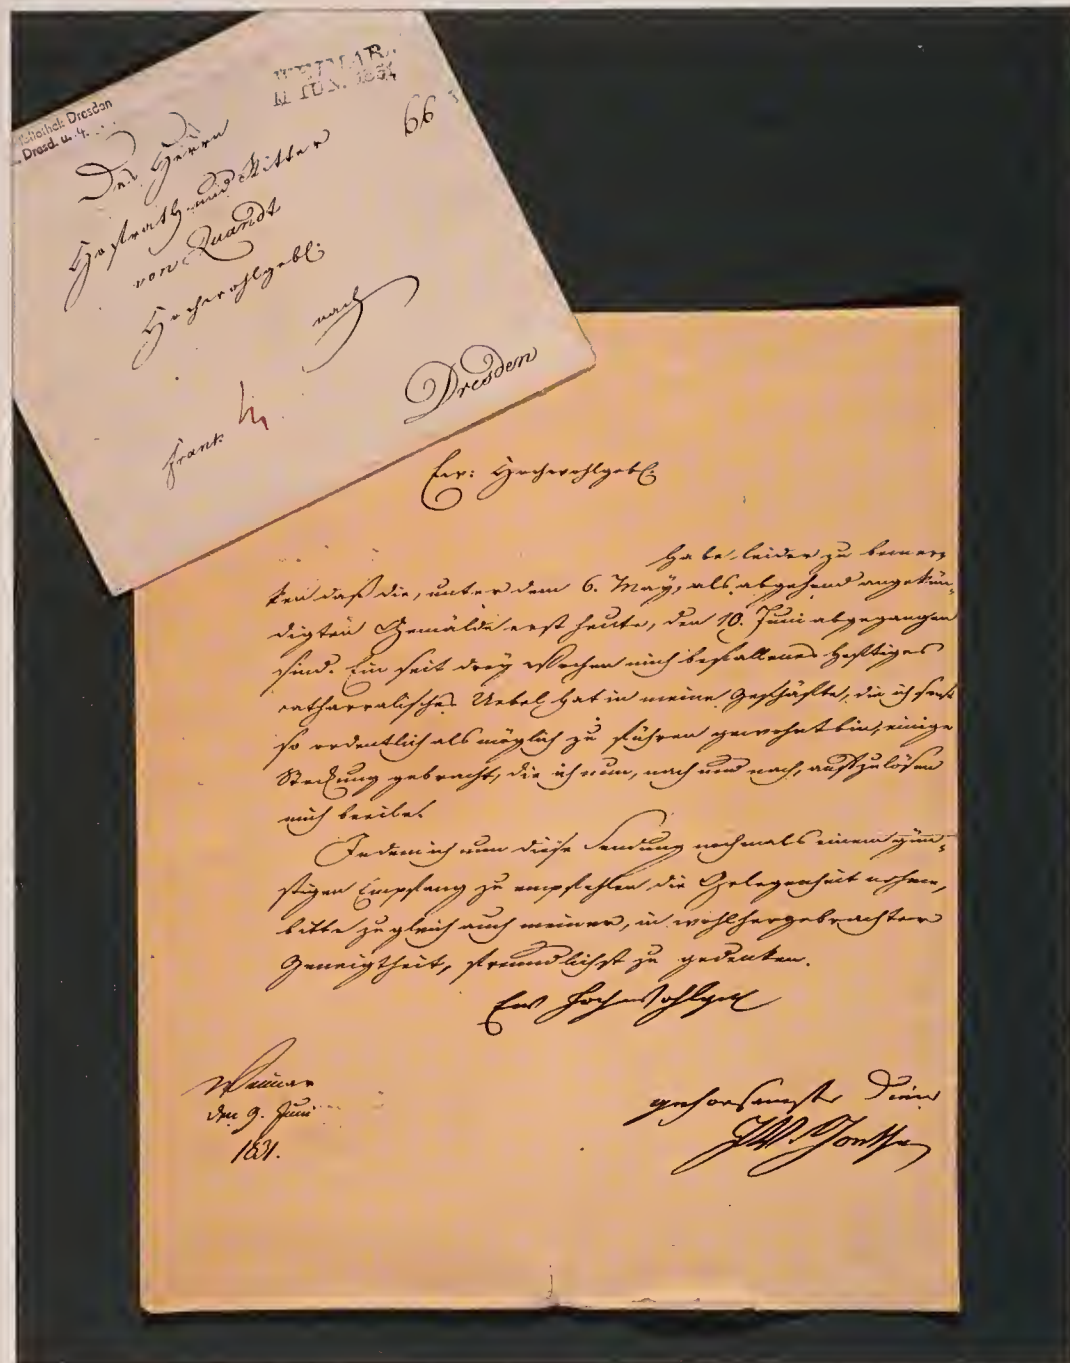 bliothek Dresden
Dresd. u. 4.
WEYMAR.
11 IUN. 1831
66
Des Herrn
Hofrath und Ritter
von Quandt
Hochwohlgebl:
nach
Dresden
frank
Ew: Hochwohlgebl:
habe leider zu bemer-
ken daß die, unter dem 6. May, als abgehend angekün-
digten Gemälde erst heute, den 10. Juni abgegangen
sind. Ein seit drey Wochen mich befallenes heftiges
catharralisches Uebel hat in meine Geschäfte, die ich sonst
so ordentlich als möglich zu führen gewohnt bin, einige
Stockung gebracht, die ich nun, nach und nach, aufzulösen
mich beeile.
Indem ich nun diese Sendung nochmals einem gün-
stigen Empfang zu empfehlen die Gelegenheit nehme,
bitte zugleich auch meiner, in wohlhergebrachter
Geneigtheit, freundlichst zu gedenken.
Ew Hochwohlgeb
Weimar
den 9. Juni
1831.
gehorsamster Diener
JW. Goethe